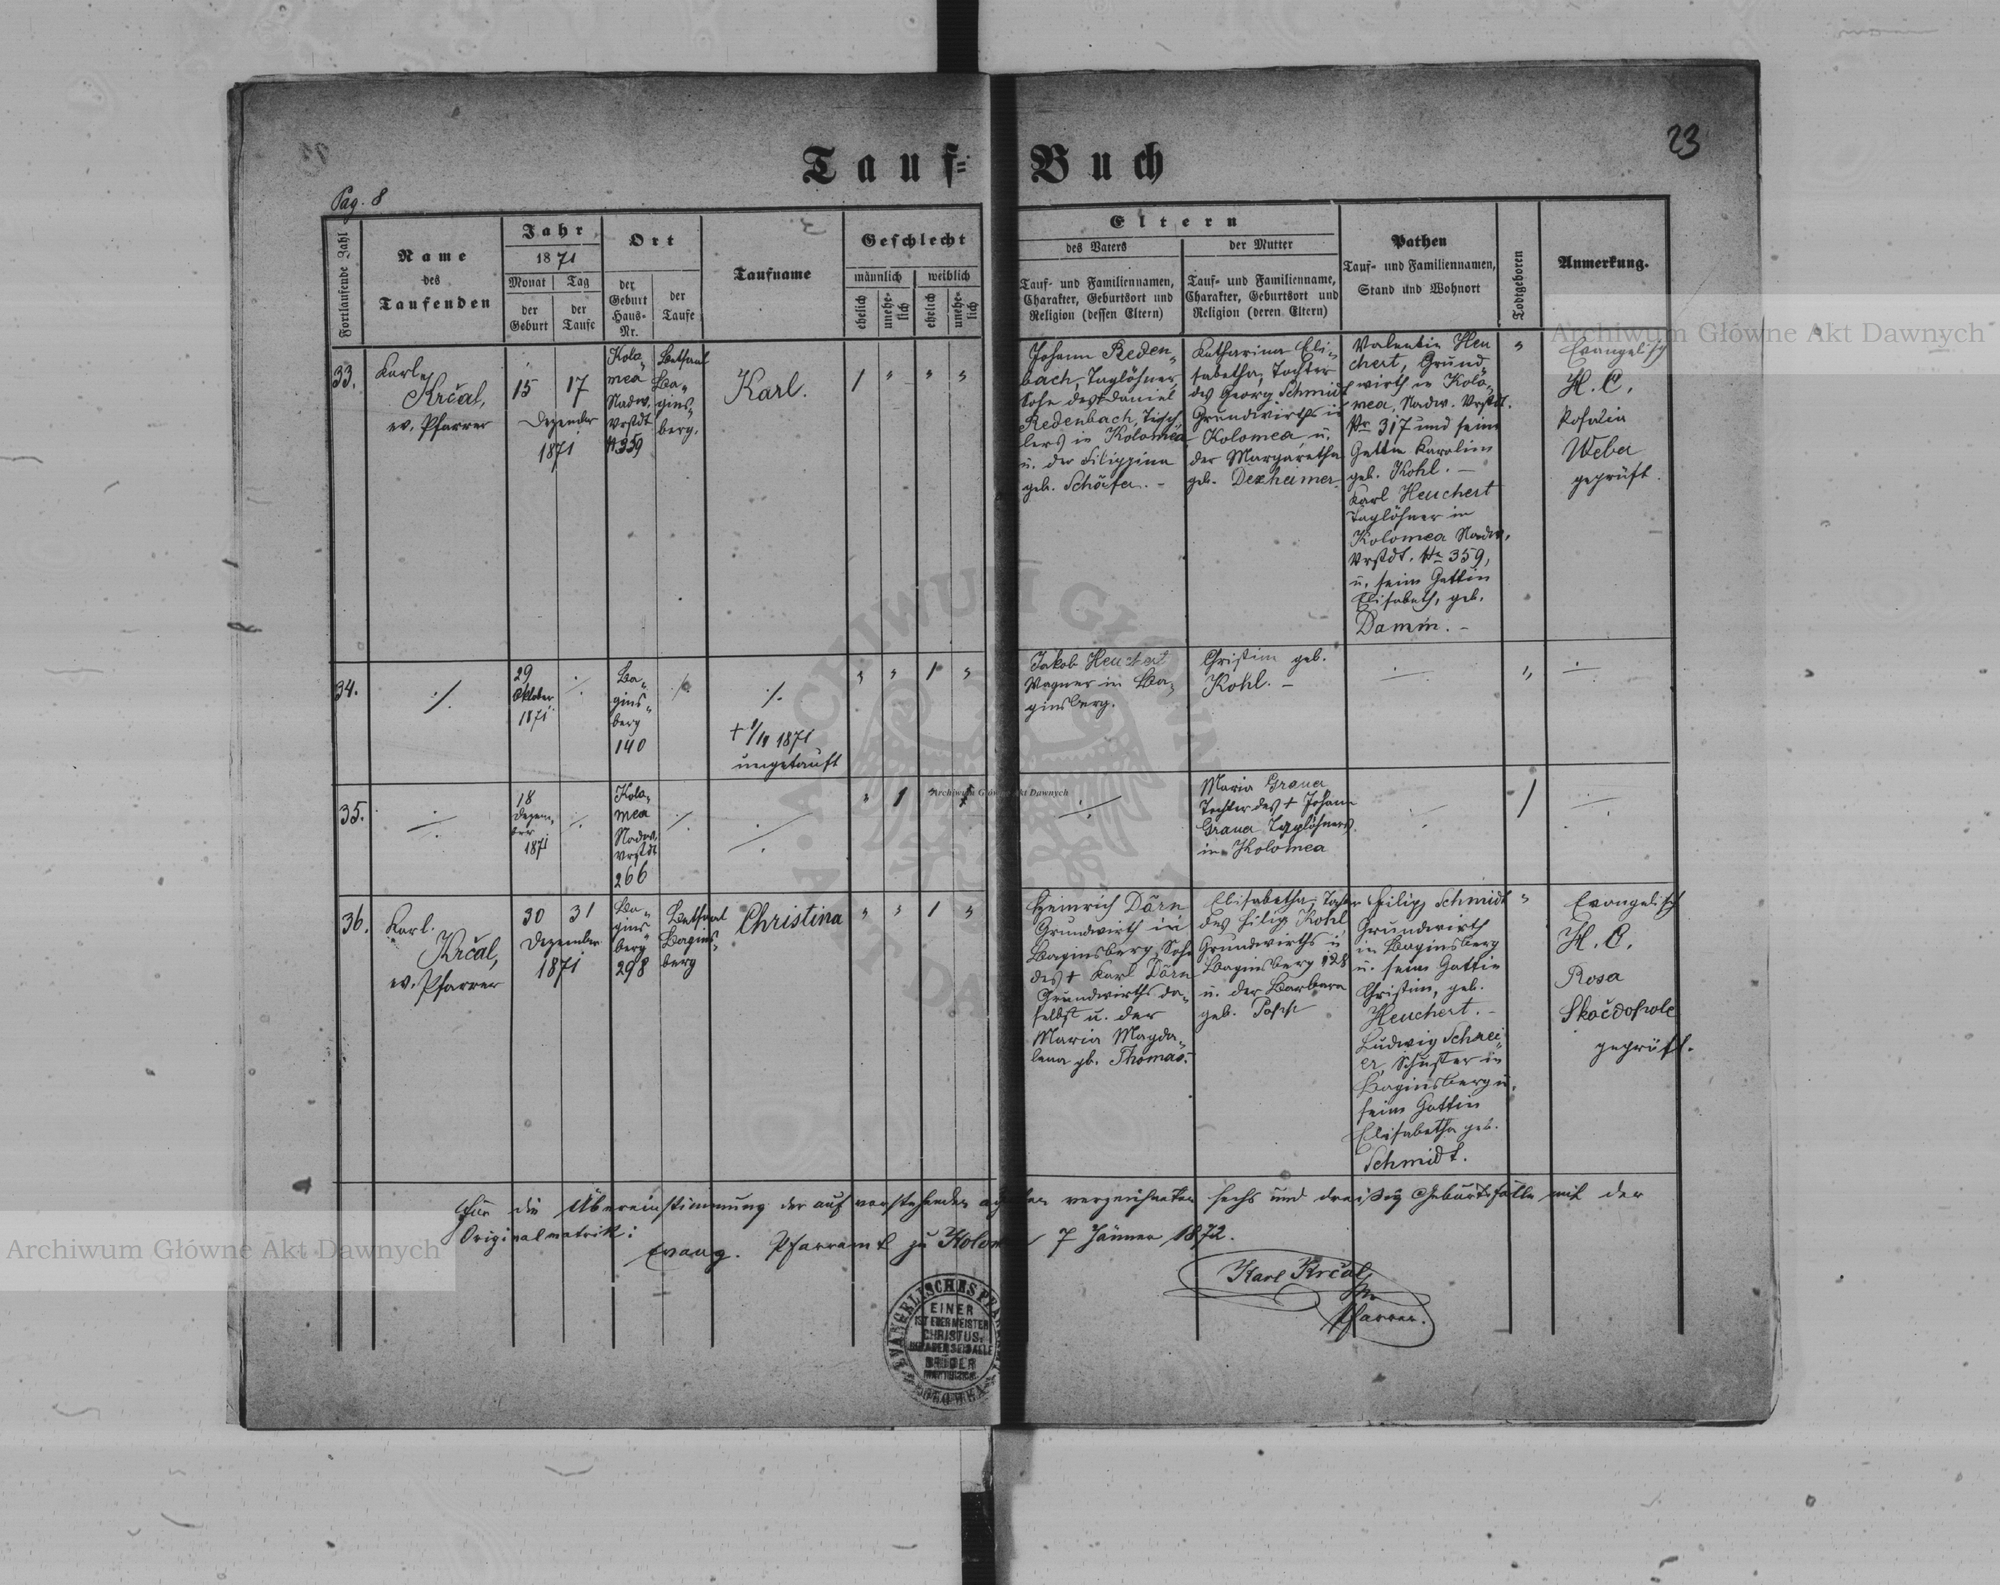 Tauf= Buch
23
Pag. 8
Fortlaufende Zahl
Name
des
Taufenden
Jahr
1871
Monat
Tag
der
Geburt
der
Taufe
Ort
der
Geburt
Haus-
Nr.
der
Taufe
Taufname
Geschlecht
männlich
weiblich
ehelich
unehe-
lich
ehelich
unehe-
lich
Eltern
des Vaters
der Mutter
Tauf- und Familiennamen,
Charakter, Geburtsort und
Religion (dessen Eltern)
Tauf- und Familienname,
Charakter, Geburtsort und
Religion (deren Eltern)
Pathen
Tauf- und Familiennamen,
Stand und Wohnort
Todtgeboren
Anmerkung.
33.
Karl
Krčal,
ev. Pfarrer
15
17
Dezember
1871
Kolo„
mea
Nadw.
Vrstdt
№ 359
Bethsaal
Ba„
gins„
berg.
Karl.
1
"
"
"
Johann Reden„
bach, Taglöhner,
Sohn des Daniel
Redenbach, Tisch„
lers in Kolomea
u. der Filippina
geb. Schäfer. -
Katharina Eli„
sabetha, Tochter
des Georg Schmidt
Grundwirths in
Kolomea, u.
der Margaretha
geb. Dexheimer
Valentin Heu
chert, Grund„
wirth in Kolo„
mea, Nadw. Vrstdt.
Nr 317 und seine
Gattin Karolina
geb. Kohl. -
Karl Heuchert
Taglöhner in
Kolomea Nadw.
Vrstdt. Nr 359,
u. seine Gattin
Elisabeth, geb.
Damm. -
"
Evangelisch
H. C.
Rosalia
Weber
geprüft.
34.
./.
29
Oktober
1871
./.
Ba„
gins„
berg
140
./.
./.
+ 9/11 1871
ungetauft
"
"
1
"
Jakob Heuchert
Wagner in Ba„
ginsberg.
Christina geb.
Kohl. -
"
35.
./.
18
Dezem„
ber
1871
./.
Kolo„
mea
Nadw.
Vrstdt
266
./.
./.
"
1
"
1
./.
Maria Grauer
Tochter des + Johann
Grauer Taglöhners
in Kolomea
1
36.
Karl.
Krčal,
ev. Pfarrer
30
31
Dezember
1871
Ba„
gins„
berg
298
Bethsaal
Bagins„
berg
Christina
"
"
1
"
Heinrich Dörn
Grundwirth in
Baginsberg, Sohn
des + Karl Dörn
Grundwirths da„
selbst u. der
Maria Magda„
lena gb. Thomas.
Elisabetha, Tochter
des Filipp Kohl
Grundwirths in
Baginsberg 128
u. der Barbara
geb.
Filipp Schmidt
Grundwirth
in Baginsberg
u. seine Gattin
Christina, geb.
Heuchert. -
Ludwig Schrei„
er, Schuster in
Baginsberg u.
seine Gattin
Elisabetha geb.
Schmidt.
"
Evangelisch
H. C.
Rosa
geprüft.
Für die Übereinstimmung der auf vorstehenden verzeichneten sechs und dreißig Geburtsfälle mit der
Originalmatrik:
Evang. Pfarramt zu Kolomea 7 Jänner 1872.
Karl Krčal
Pfarrer.
EINER
IST EUER MEISTER
CHRISTUS,
IHR ABER SEID ALLE
BRÜDER
Archiwum Główne Akt Dawnych
Archiwum Główne Akt Dawnych
Archiwum Główne Akt Dawnych